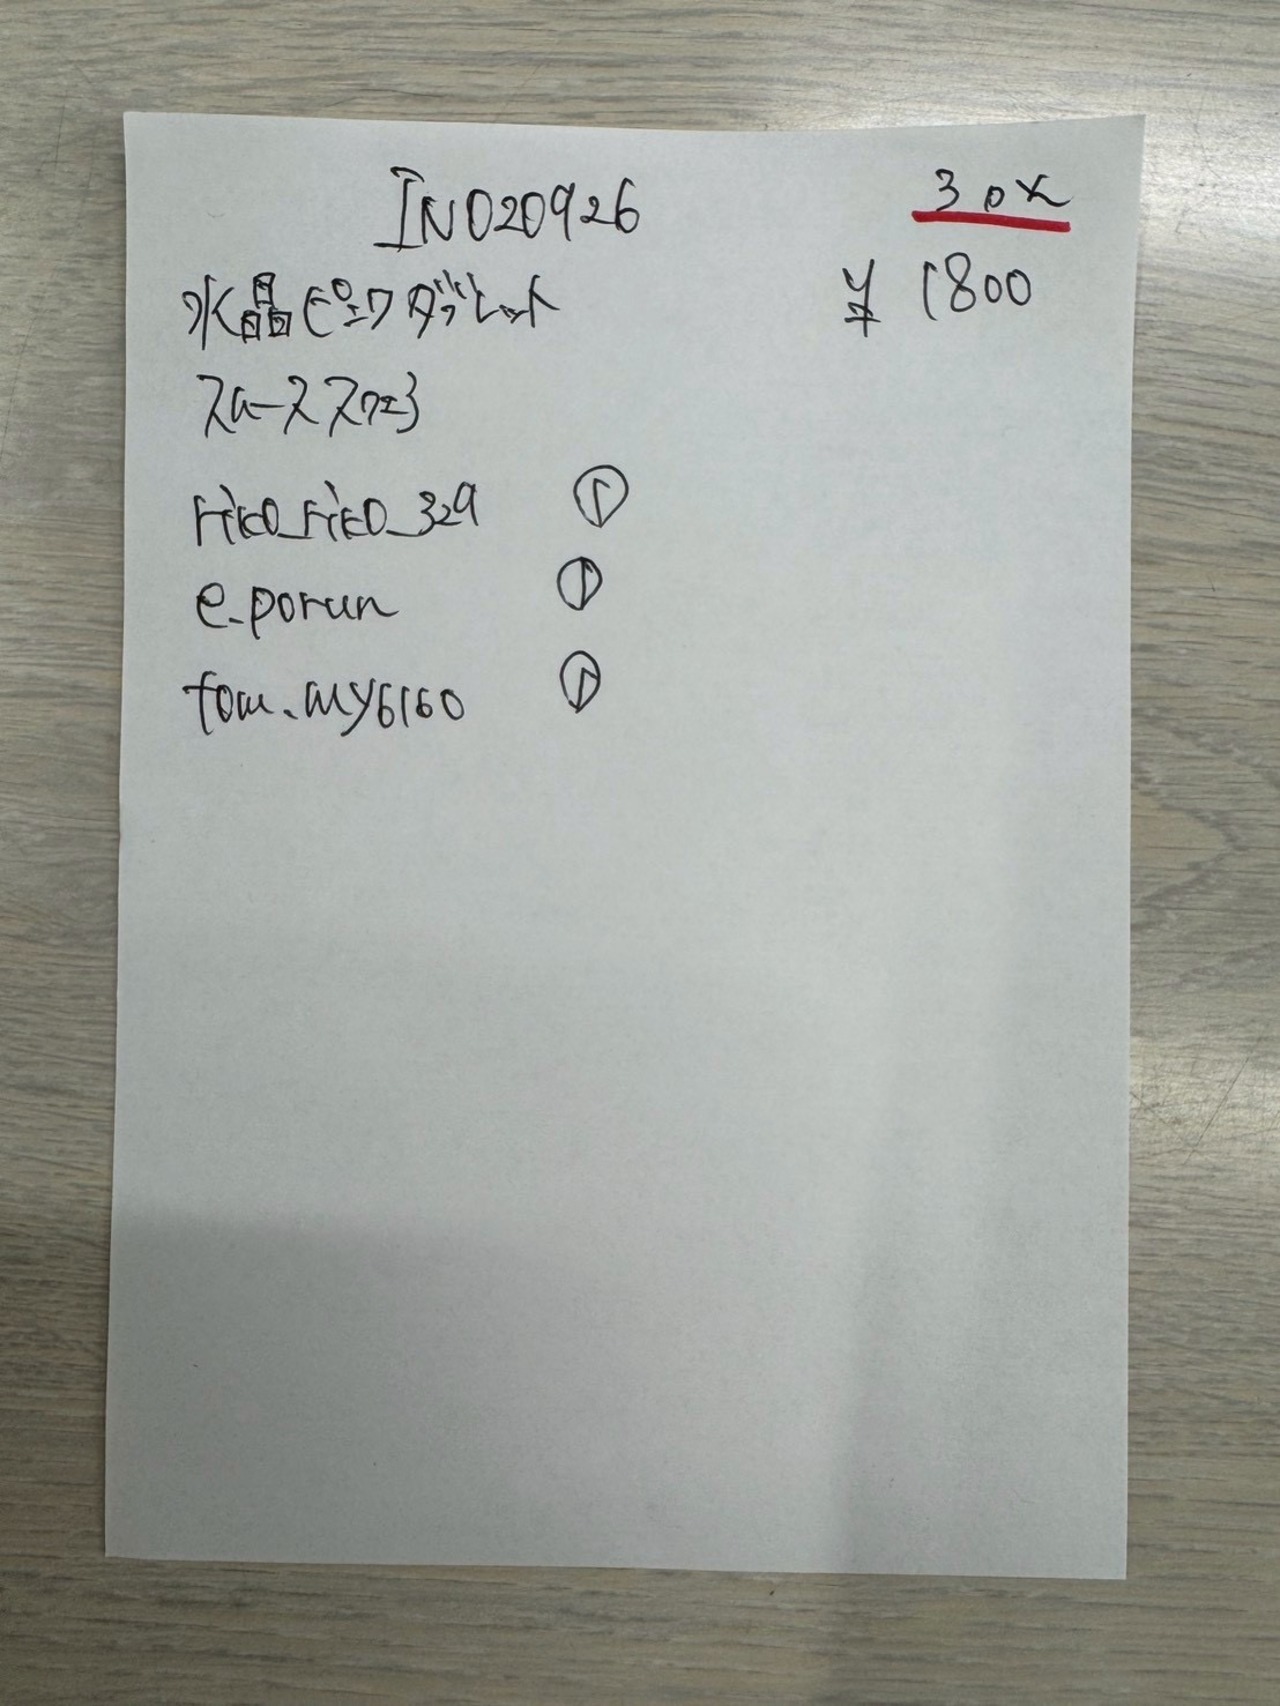 IN020926
30x
水晶ピンクダブレット
¥ 1800
スペーススクエア
rico_rico_329 ①
e_porun ①
tom.my6160 ①